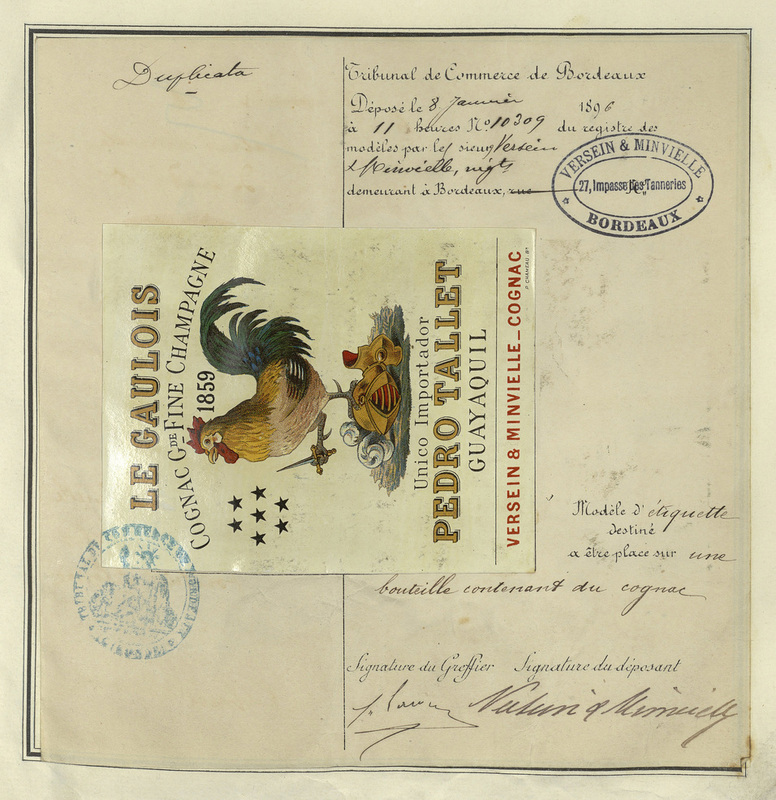 Duplicata
Tribunal de Commerce de Bordeaux
Déposé le 8 Janvier 1896
à 11 heures No. 10309 du registre des
modèles par les sieurs Versein
& Minvielle, négts
demeurant à Bordeaux, rue
VERSEIN & MINVIELLE
27, Impasse des Tanneries
BORDEAUX
LE GAULOIS
COGNAC GDE FINE CHAMPAGNE
1859
Unico Importador
PEDRO TALLET
GUAYAQUIL
VERSEIN & MINVIELLE_COGNAC
TRIBUNAL DE COMMERCE DE BORDEAUX
(GIRONDE)
Modèle d'étiquette
destiné
a être place sur une
bouteille contenant du cognac
Signature du Greffier Signature du déposant
Versein & Minvielle